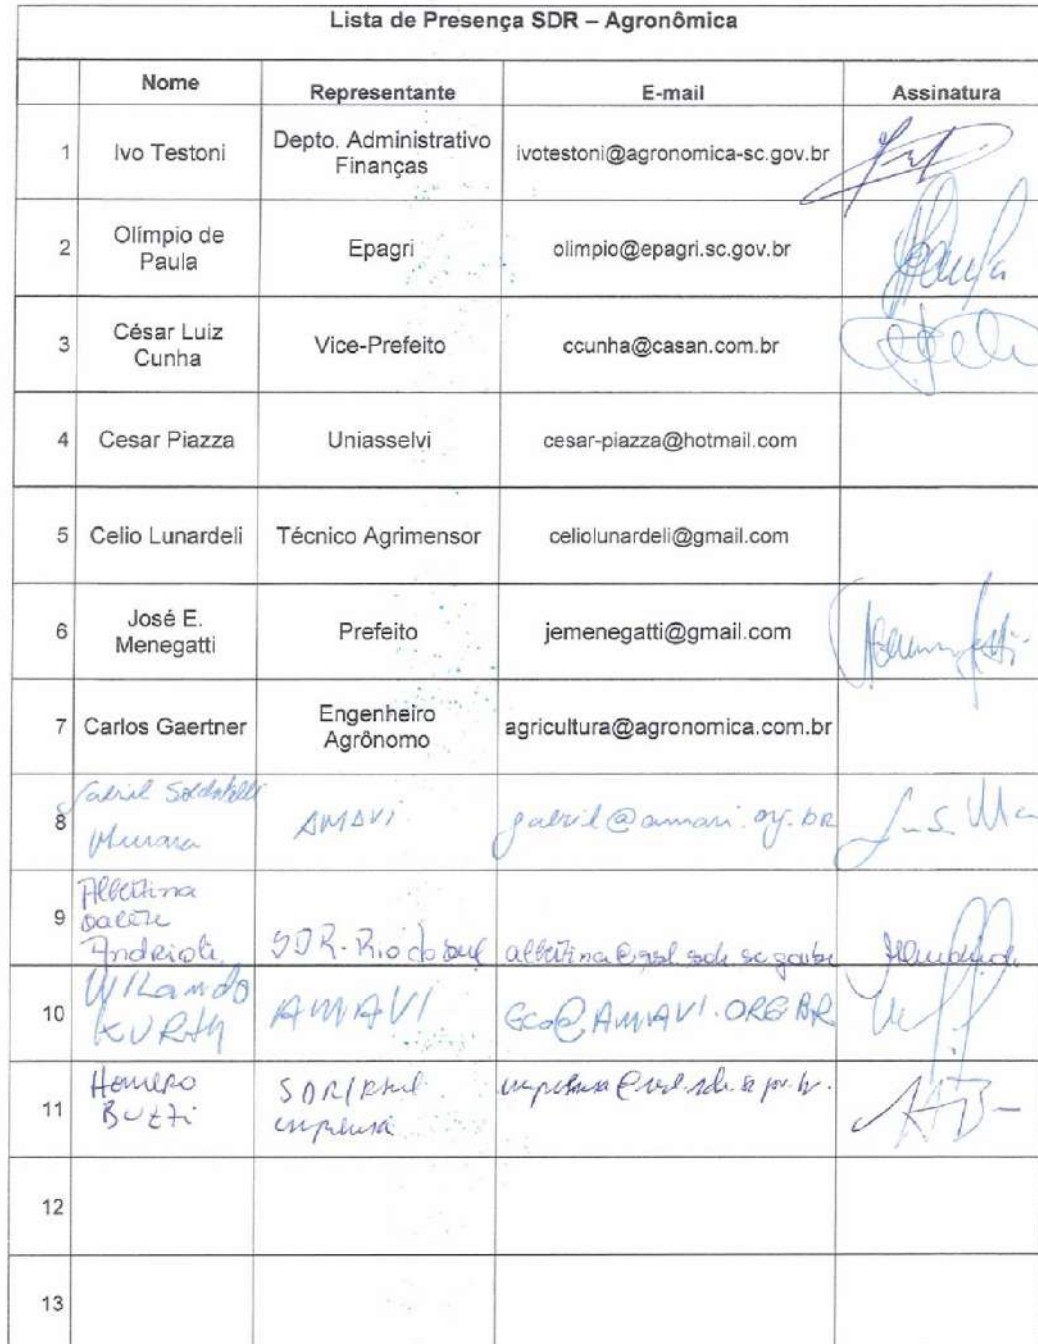 Lista de Presença SDR – Agronômica
Nome Representante E-mail Assinatura
1 Ivo Testoni Depto. Administrativo Finanças ivotestoni@agronomica-sc.gov.br
2 Olímpio de Paula Epagri olimpio@epagri.sc.gov.br
3 César Luiz Cunha Vice-Prefeito ccunha@casan.com.br
4 Cesar Piazza Uniasselvi cesar-piazza@hotmail.com
5 Celio Lunardeli Técnico Agrimensor celiolunardeli@gmail.com
6 José E. Menegatti Prefeito jemenegatti@gmail.com
7 Carlos Gaertner Engenheiro Agrônomo agricultura@agronomica.com.br
8 AMAVI
9 Albertina Andrioli SDR-Rio do Sul
10 Wilando Kurth AMAVI GCO@AMAVI.ORG.BR
11 Homero Buzzi
12
13